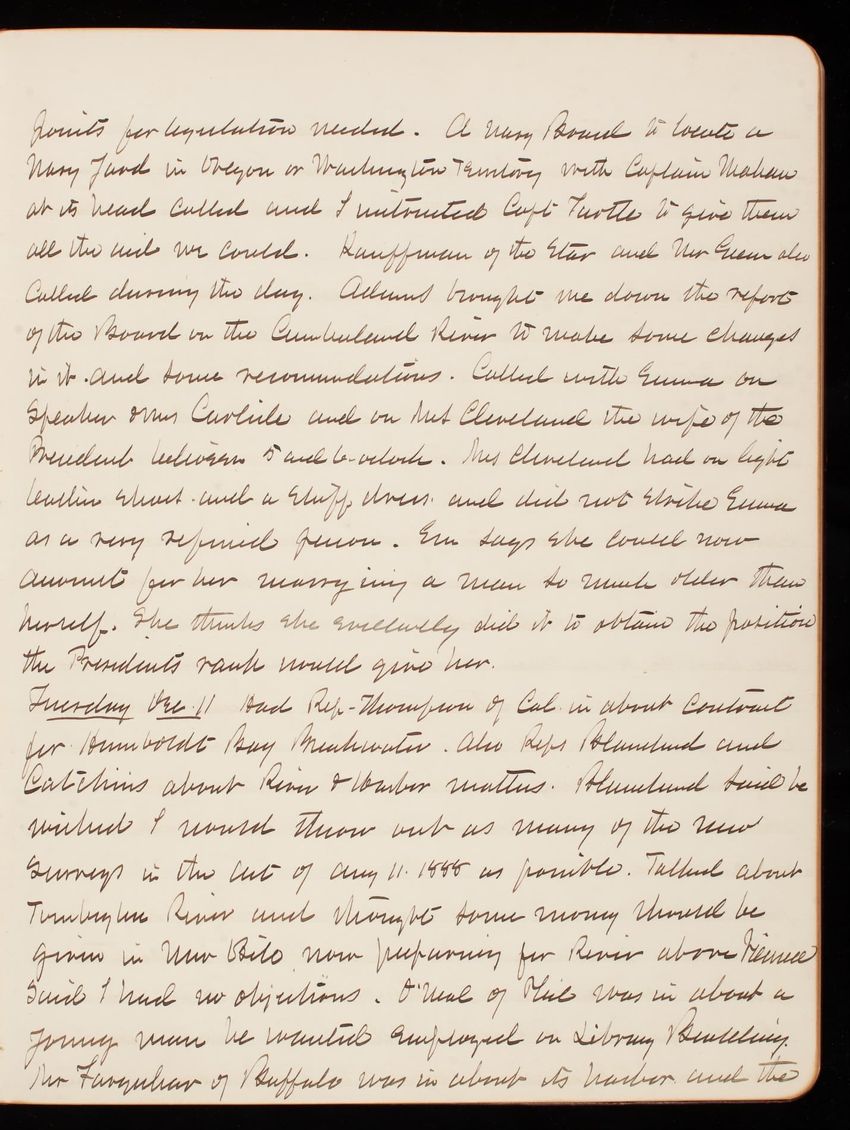 points for legislation needed. A Navy Board to locate a
Navy Yard in Oregon or Washington Territory with Captain Mahan
at its head called and I instructed Capt Turtle to give them
all the aid we could. Kauffman of the Star and Mr Green also
called during the day. Adams brought me down the report
of the Board on the Cumberland River to make some changes
in it and some recommendations. Called with Emma on
Speaker & Mrs Carlisle and on Mrs Cleveland the wife of the
President between 5 and 6 oclock. Mrs Cleveland had on light
waist and a stuff dress and did not strike Emma
as a very refined person. Em says she could now
account for her marrying a man so much older than
herself. She thinks she evidently did it to obtain the position
the Presidents rank would give her.
Tuesday Dec 11 Had Rep-Thompson of Cal in about contract
for Humboldt Bay Breakwater. Also Reps Blanchard and
Catchins about River & Harbor matters. Blanchard said he
wished I would throw out as many of the new
Surveys in the Act of Aug 11. 1888 as possible. Talked about
Tombigbee River and thought some money should be
given in new Bill now preparing for River above Vienna
Said I had no objections. O'Neal of Phil was in about a
young man he wanted employed on Library Building.
Mr Farquhar of Buffalo was in about its harbor and the